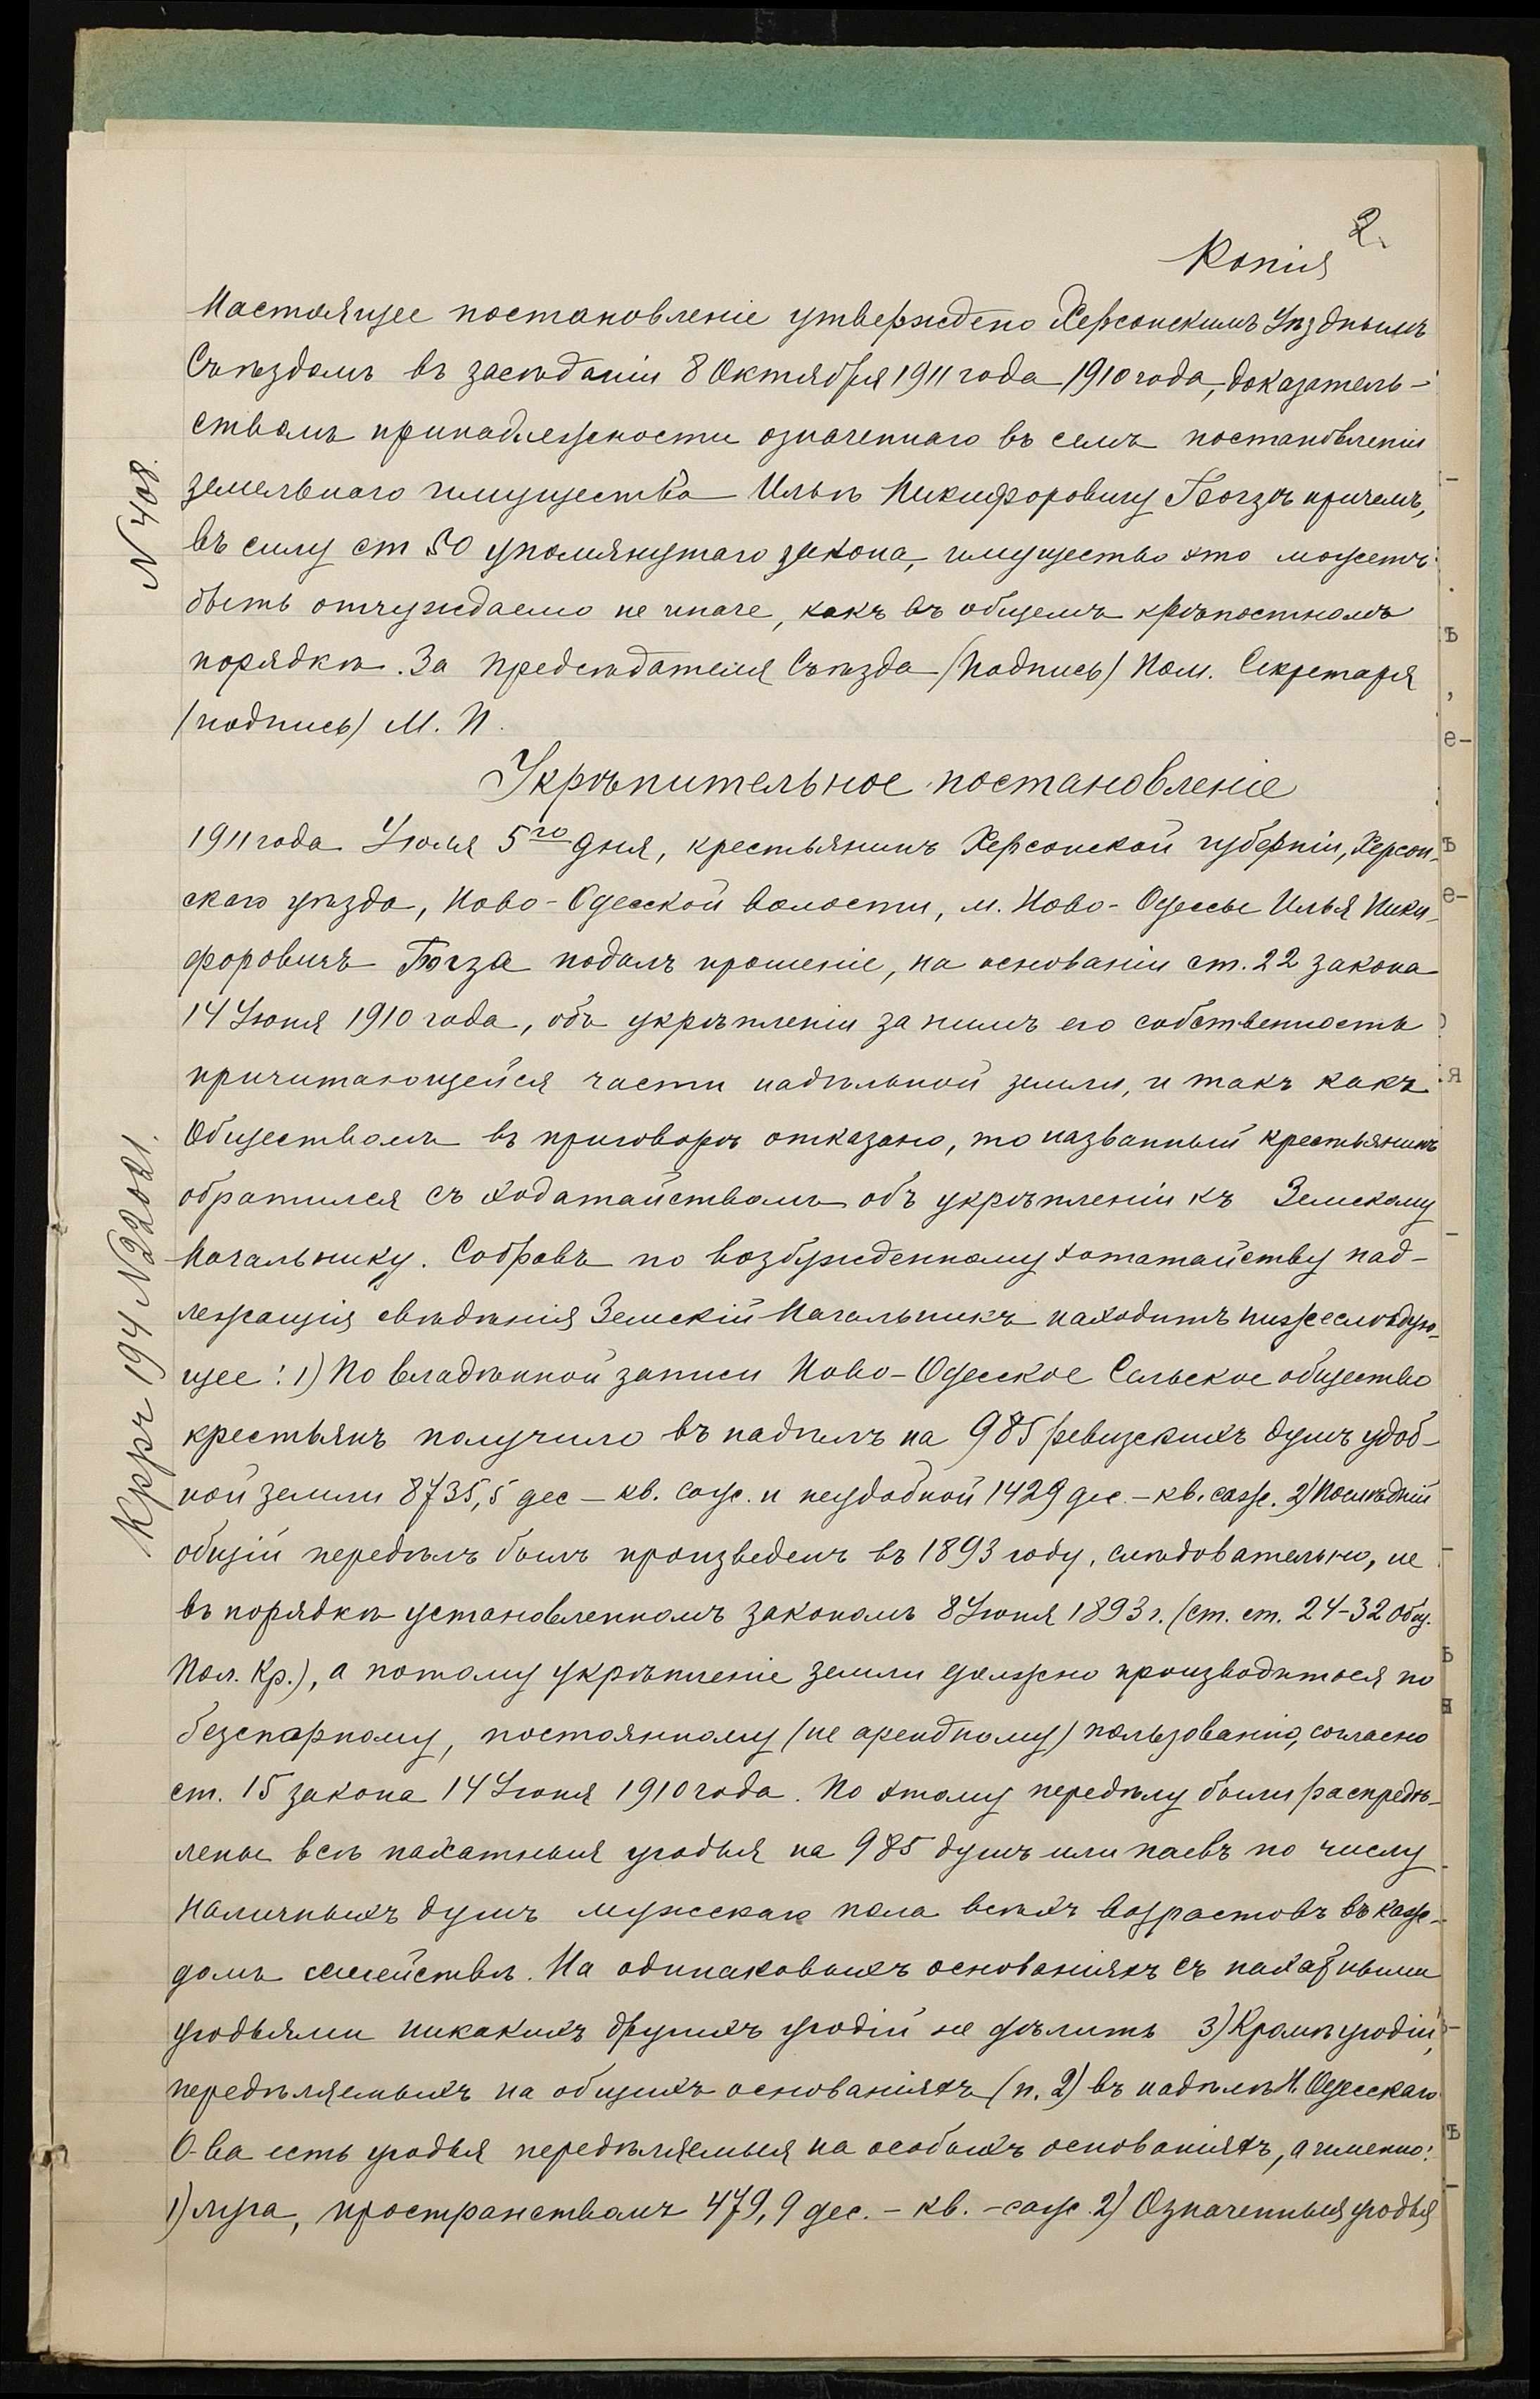 2.
Копія
Настоящее постановленіе утверждено Херсонскимъ Уѣзднымъ
Съѣздомъ въ засѣданіи 8 Октября 1911 года 1910 года, доказатель-
ствомъ принадлежности означеннаго въ семъ постановленіи
земельнаго имущества Ильѣ Никифоровичу причемъ,
въ силу ст 50 упомянутаго закона, имущество это можетъ
быть отчуждаемо не иначе, какъ въ общемъ крѣпостномъ
порядкѣ. За Предсѣдателя Съѣзда (Подпись) Пом. Секретаря
(подпись) М. П.
N 408.
Укрѣпительное постановленіе
1911 года Іюля 5го дня, крестьянинъ Херсонской губерніи, Херсон-
скаго уѣзда, Ново-Одесской волости, м. Ново-Одессы Илья Ники-
форовичъ подалъ прошеніе, на основаніи ст. 22 закона
14 Іюня 1910 года, объ укрѣпленіи за нимъ его собственность
причитающейся части надѣльной земли, и такъ какъ
Обществомъ въ приговорѣ отказано, то названный крестьянинъ
обратился съ ходатайствомъ объ укрѣпленіи къ Земскому
Начальнику. Собравъ по возбужденному хотатайству над-
лежащія свѣдѣнія Земскій Начальникъ находитъ нижеслѣдую-
щее: 1) По владѣнной записи Ново-Одесское Сельское общество
крестьянъ получило въ надѣлъ на 985 ревизскихъ душъ удоб-
ной земли 8735,5 дес - кв. саж. и неудобной 1429 дес. - кв. саж. 2) Послѣдній
общій передѣлъ былъ произведенъ въ 1893 году, слѣдовательно, не
въ порядкѣ установленномъ закономъ 8 Іюня 1893 г. (ст. ст. 24-32 Общ.
Пол. Кр.), а потому укрѣпленіе земли должно производится по
безспорному, постоянному (не арендному) пользованію, согласно
ст. 15 закона 14 Іюня 1910 года. По этому передѣлу были распредѣ-
лены всѣ пахатныя угодья на 985 душъ или паевъ по числу
наличныхъ душъ мужскаго пола всѣхъ возрастовъ въ каж-
домъ семействѣ. На одинаковыхъ основаніяхъ съ пахатными
угодьями никакихъ другихъ угодій не дѣлить 3) Кромѣ угодій,
передѣляемыхъ на общихъ основаніяхъ (п. 2) въ надѣлѣ Н. Одесскаго
О-ва есть угодья передѣляемыя на особыхъ основаніяхъ, а именно:
1) луга, пространствомъ 479,9 дес. - кв. - саж. 2) Означенныя угодья
194 N 22021.